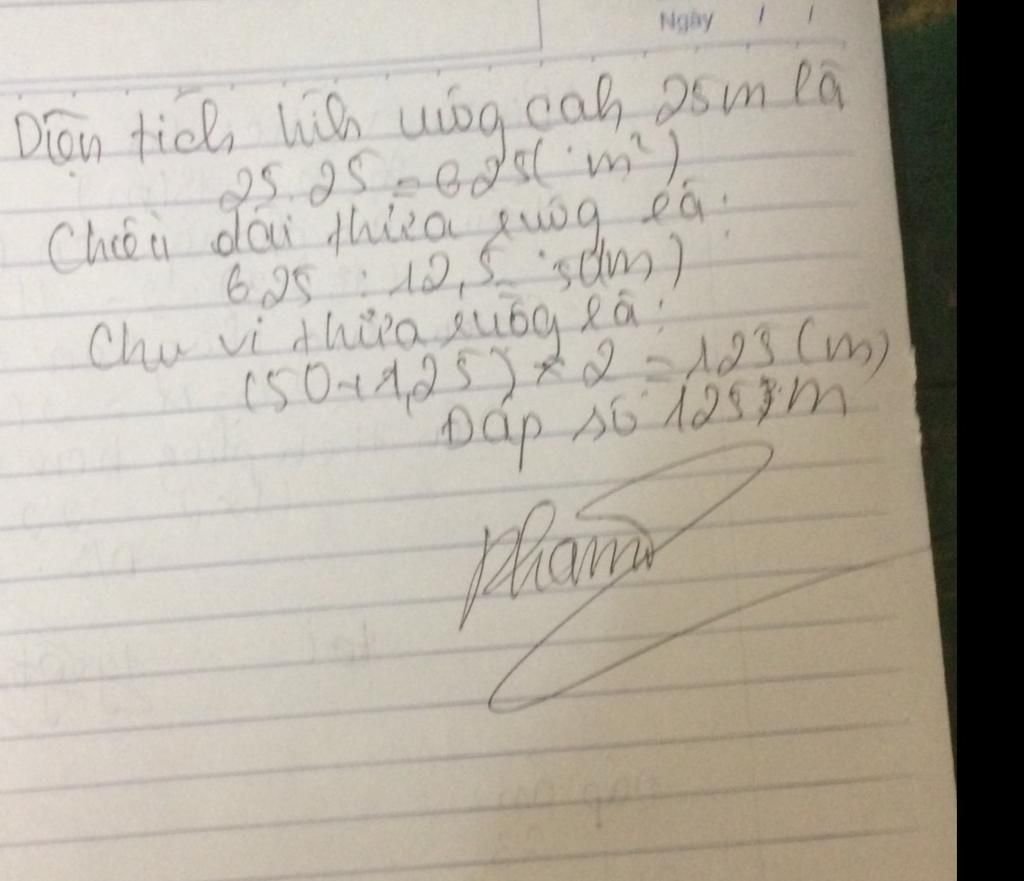 Ngày / /
Diện tích hình vuông cah 25m là
25.25 = 625( m²)
Chiều dài thửa ruộng là:
625 : 12,5 = 50(m)
Chu vi thửa ruộng là:
(50+1,25) × 2 = 125 (m)
Đáp số 125 m
Pham